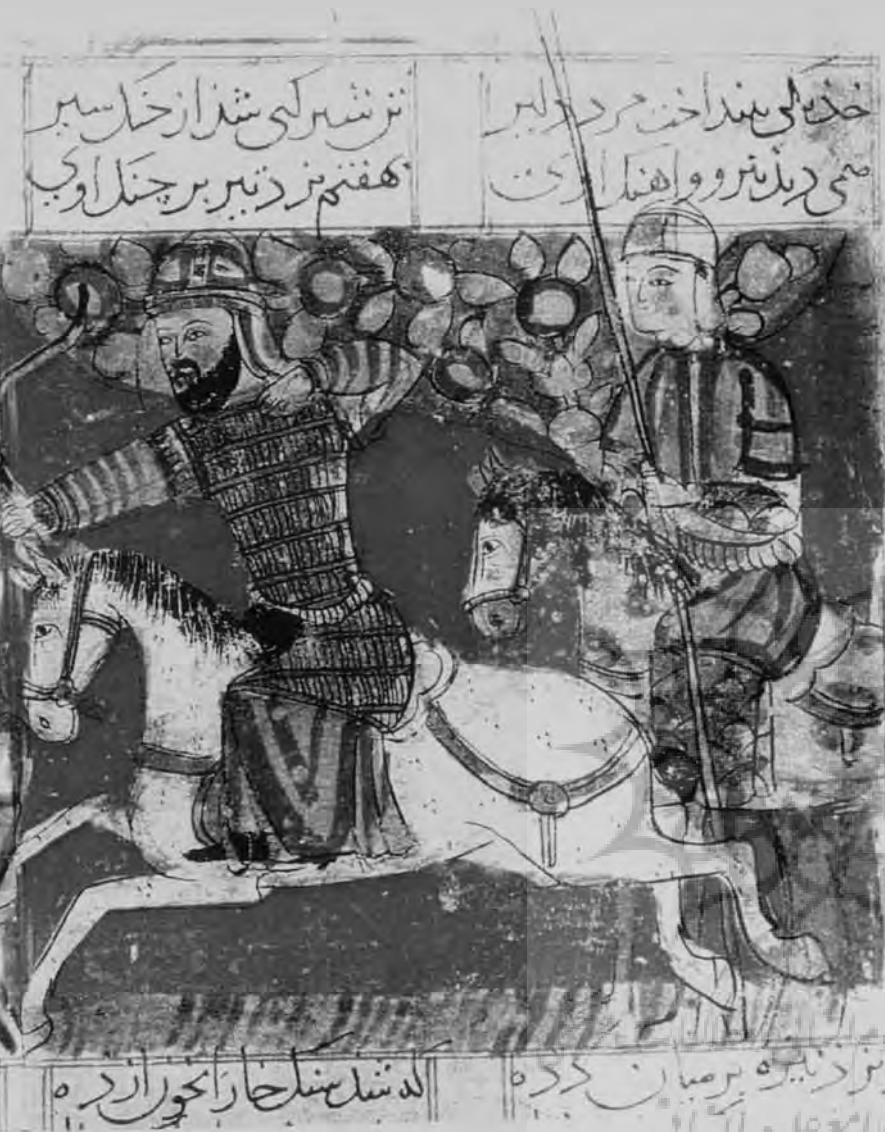 خدنکی بینداخت مرد دلیر تن شیر کپی شد از جنک سیر
همی دید نیرو و اهنک اوی بهفتم بزد تیر بر چنک اوی
بزد نیزه بر میان دده که شد سنک خارا بخون ازده